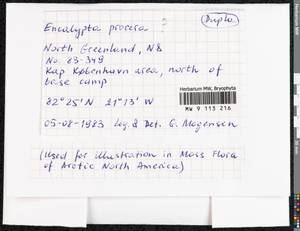 Duplo.
Encalypta procera
North Greenland, N&
No. 83-349
Kap København area, north of
base camp
82°25'N 21°13' W
Herbarium MW, Bryophyta
MW 9 113 216
05-08-1983 Leg. & Det. G. Mogensen
(Used for illustration in Moss Flora
of Arctic North America)